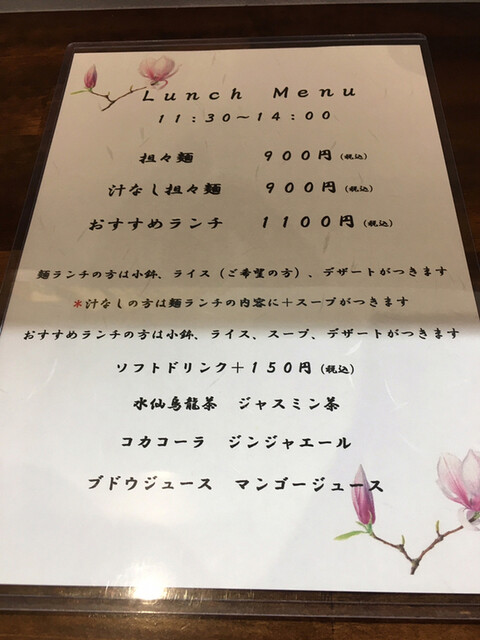 Lunch Menu
11:30～14:00
担々麺 900円(税込)
汁なし担々麺 900円(税込)
おすすめランチ 1100円(税込)
麺ランチの方は小鉢、ライス(ご希望の方)、デザートがつきます
*汁なしの方は麺ランチの内容に+スープがつきます
おすすめランチの方は小鉢、ライス、スープ、デザートがつきます
ソフトドリンク+150円(税込)
水仙烏龍茶 ジャスミン茶
コカコーラ ジンジャエール
ブドウジュース マンゴージュース